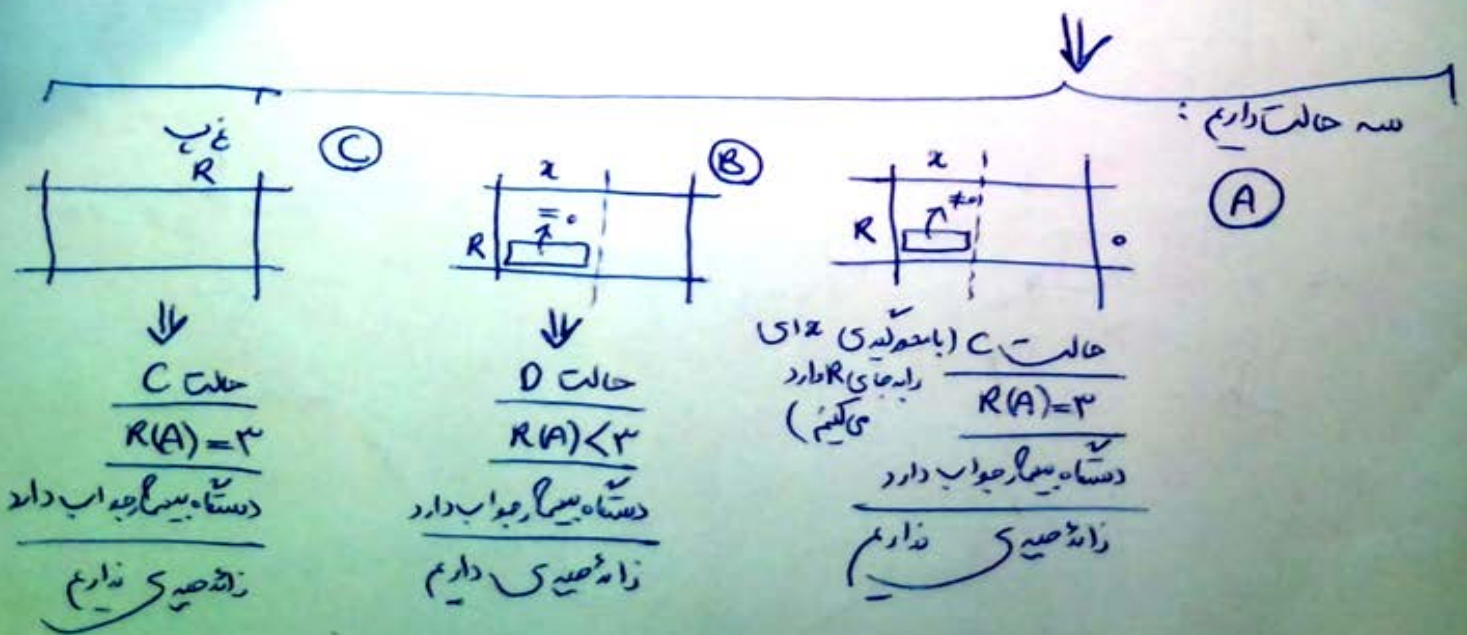 سه حالت داریم :
A
x
≠0
R
0
حالت C (با محورگیری xای
را به جای R وارد
می‌کنیم)
R(A)=۳
دستگاه بیشمار جواب دارد
زائد حدی نداریم
B
x
=0
R
حالت D
R(A)<۳
دستگاه بیشمار جواب دارد
زائد حدی داریم
C
غ پ
R
حالت C
R(A)=۳
دستگاه بیشمار جواب دارد
زائد حدی نداریم